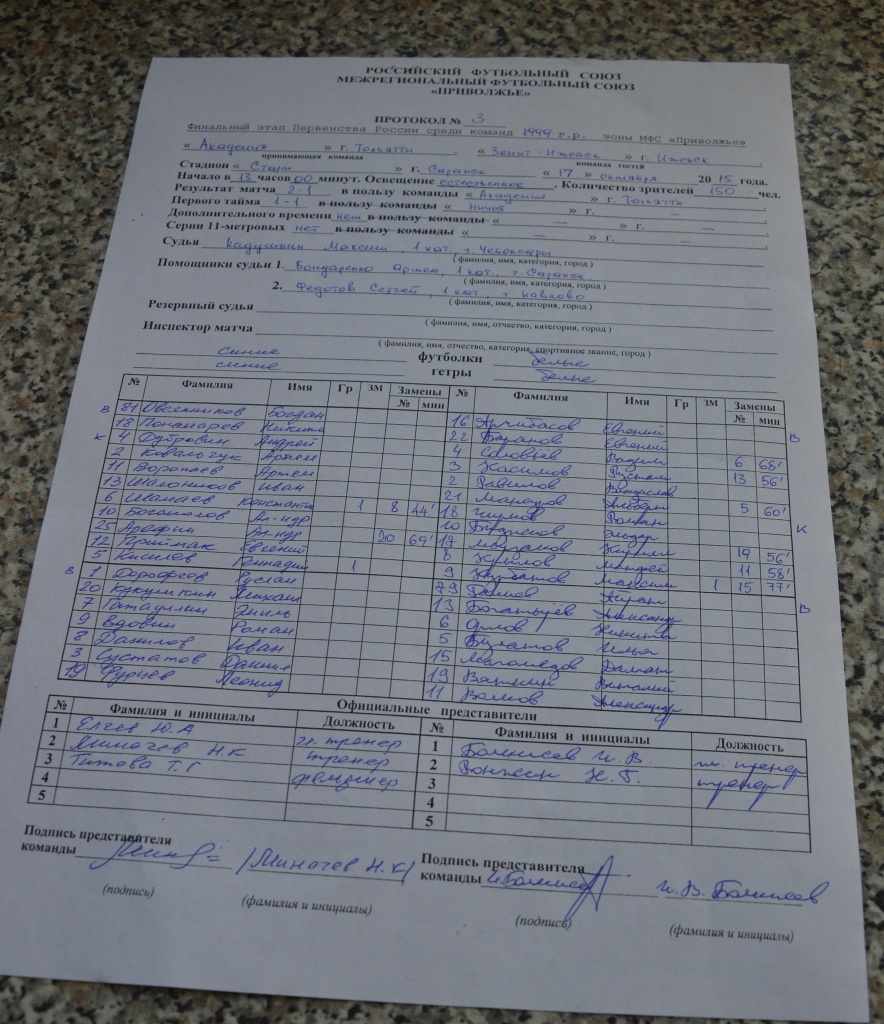 РОССИЙСКИЙ ФУТБОЛЬНЫЙ СОЮЗ
МЕЖРЕГИОНАЛЬНЫЙ ФУТБОЛЬНЫЙ СОЮЗ
«ПРИВОЛЖЬЕ»
ПРОТОКОЛ № 3
Финальный этап Первенства России среди команд 1999 г.р. зоны МФС «Приволжье»
« Академия » г. Тольятти . « Зенит - Ижевск » г. Ижевск .
принимающая команда команда гостей
Стадион « Старт » г. Саранск « 17 » октября 2015 года.
Начало в 13 часов 00 минут. Освещение естественное . Количество зрителей 150 чел.
Результат матча 2-1 в пользу команды « Академия » г. Тольятти .
Первого тайма 1-1 в пользу команды « ничья » г. — .
Дополнительного времени нет в пользу команды « — » г. — .
Серии 11-метровых нет в пользу команды « — » г. — .
Судья Кадушкин Максим , 1 кат., г. Чебоксары
( фамилия, имя, категория, город )
Помощники судьи 1. Бондаренко Артем, 1 кат., г. Саранск
( фамилия, имя, категория, город )
2. Федотов Сергей , 1 кат., г. Павлово
( фамилия, имя, категория, город )
Резервный судья
( фамилия, имя, отчество, категория, город )
Инспектор матча
( фамилия, имя, отчество, категория, спортивное звание, город )
синие футболки белые
синие гетры белые
№ Фамилия Имя Гр ЗМ Замены № Фамилия Имя Гр ЗМ Замены
№ мин № мин
в 81 Овсянников Богдан 16 Евгений в
18 Пономарев Никита 22 Баранов Евгений
к 4 Дубровин Андрей 4 Соловьев Вадим 6 68'
2 Ковальчук Артем 3 Касимов Рустам 13 56'
11 Воропаев Артем 2 Равилов
13 Шапошников Иван 21 Альберт 5 60'
6 Шамаев Константин 1 8 44' 18 Роман к
10 Богомолов Ал-ндр 10
25 Арефин Ал-ндр 20 69' 17 Кирилл 14 56'
12 Приймак Евгений 8 Матвей 11 58'
5 Киселев Геннадий 1 9 Курбатов Максим 1 15 77'
в 1 Дорофеев Руслан 79 Айрат
20 Кукушкин Михаил 13 Богатырев Александр в
7 Эмиль 6 Орлов Никита
9 Вдовин Роман 5 Булатов Илья
8 Данилов Иван 15 Магомедов
3 Сустатов Даниил 19 Виталий
19 Леонид 11 Волков Александр
Официальные представители
№ Фамилия и инициалы Должность № Фамилия и инициалы Должность
1 Елчев Ю.А гл. тренер 1 И. В. гл. тренер
2 Миначев Н.К тренер 2 тренер
3 Титова Т.Г фельдшер 3
4 4
5 5
Подпись представителя Подпись представителя
команды /Миначев Н.К/ команды И. В.
(подпись) (фамилия и инициалы) (подпись) (фамилия и инициалы)